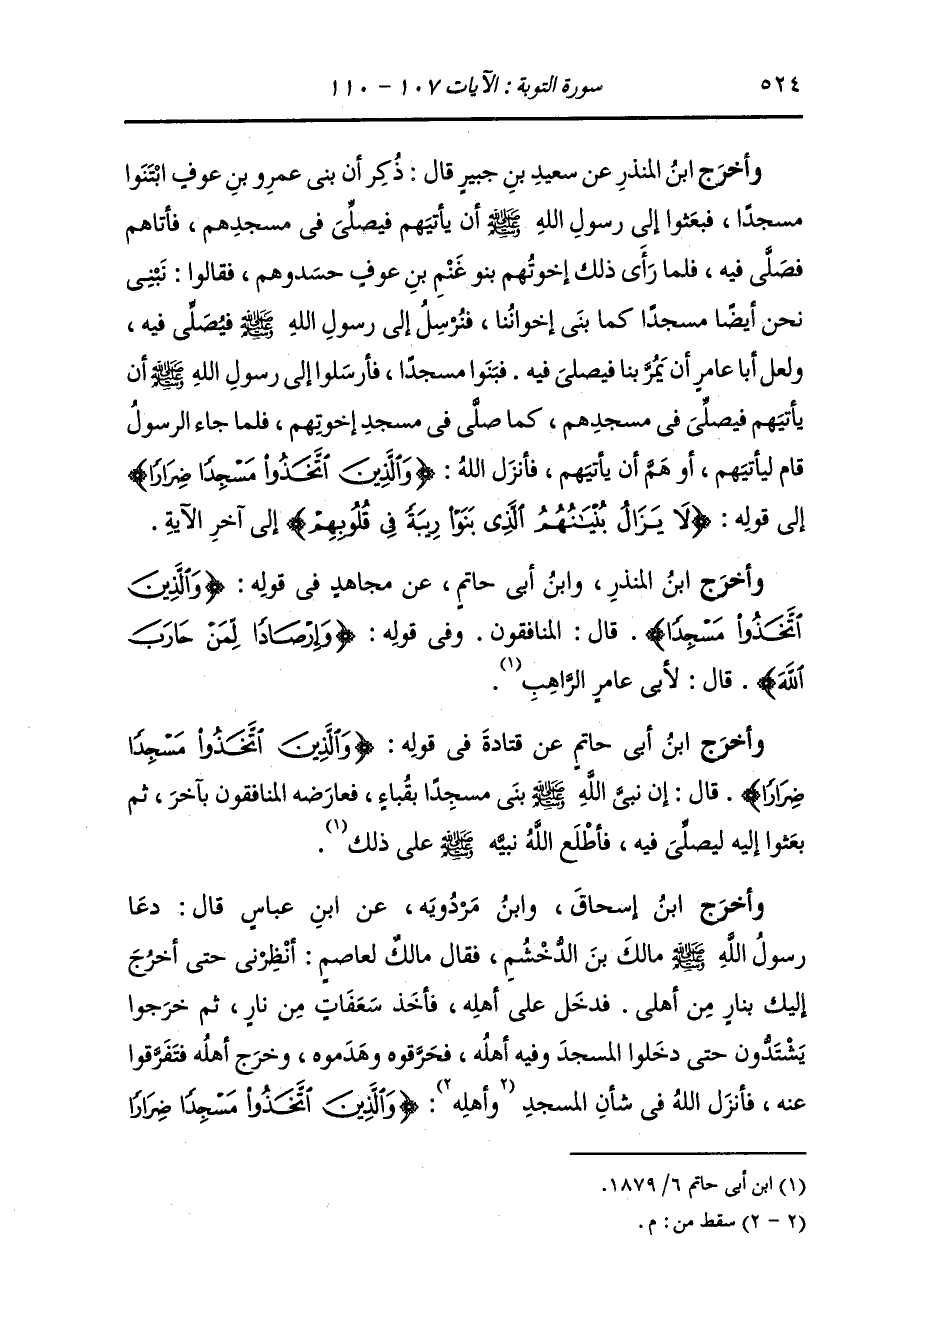 ٥٢٤
سورة التوبة : الآيات ١٠٧ - ١١٠
وأخرَج ابنُ المنذرِ عن سعيدِ بنِ جبيرٍ قال : ذُكِر أن بنى عمرِو بنِ عوفٍ ابْتَنَوا
مسجدًا ، فبعَثوا إلى رسولِ اللهِ ﷺ أن يأتيَهم فيصلِّىَ فى مسجدِهم ، فأتاهم
فصَلَّى فيه ، فلما رَأَى ذلك إخوتُهم بنو غَنْمِ بنِ عوفٍ حسَدوهم ، فقالوا : نَبْنِى
نحن أيضًا مسجدًا كما بنَى إخوانُنا ، فنُرْسِلُ إلى رسولِ اللهِ ﷺ فيُصَلِّى فيه ،
ولعل أبا عامرٍ أن يَمُرَّ بنا فيصلىَ فيه . فبَنَوا مسجدًا ، فأرسَلوا إلى رسولِ اللهِ ﷺ أن
يأتيَهم فيصلِّىَ فى مسجدِهم ، كما صلَّى فى مسجدِ إخوتِهم ، فلما جاء الرسولُ
قام ليأتيَهم ، أو هَمَّ أن يأتيَهم ، فأنزَل اللهُ : ﴿وَٱلَّذِينَ ٱتَّخَذُوا۟ مَسْجِدًا ضِرَارًا﴾
إلى قولِه : ﴿لَا يَزَالُ بُنْيَـٰنُهُمُ ٱلَّذِى بَنَوْا۟ رِيبَةً فِى قُلُوبِهِمْ﴾ إلى آخرِ الآيةِ .
وأخرَج ابنُ المنذرِ ، وابنُ أبى حاتمٍ ، عن مجاهدٍ فى قولِه : ﴿وَٱلَّذِينَ
ٱتَّخَذُوا۟ مَسْجِدًا﴾ . قال : المنافقون . وفى قولِه : ﴿وَإِرْصَادًا لِّمَنْ حَارَبَ
ٱللَّهَ﴾ . قال : لأبى عامرٍ الرَّاهبِ(١) .
وأخرَج ابنُ أبى حاتمٍ عن قتادةَ فى قولِه : ﴿وَٱلَّذِينَ ٱتَّخَذُوا۟ مَسْجِدًا
ضِرَارًا﴾ . قال : إن نبىَّ اللَّهِ ﷺ بنَى مسجدًا بقُباءٍ ، فعارَضه المنافقون بآخرَ ، ثم
بعَثوا إليه ليصلِّىَ فيه ، فأطْلَع اللَّهُ نبيَّه ﷺ على ذلك(١) .
وأخرَج ابنُ إسحاقَ ، وابنُ مَرْدُويَه ، عن ابنِ عباسٍ قال : دعَا
رسولُ اللَّهِ ﷺ مالكَ بنَ الدُّخْشُمِ ، فقال مالكٌ لعاصمٍ : أنْظِرْنى حتى أخرُجَ
إليك بنارٍ مِن أهلى . فدخَل على أهلِه ، فأخَذ سَعَفَاتٍ مِن نارٍ ، ثم خرَجوا
يَشْتَدُّون حتى دخَلوا المسجدَ وفيه أهلُه ، فحَرَّقوه وهَدَموه ، وخرَج أهلُه فتَفَرَّقوا
عنه ، فأنزَل اللهُ فى شأنِ المسجدِ (٢وأهلِه٢) : ﴿وَٱلَّذِينَ ٱتَّخَذُوا۟ مَسْجِدًا ضِرَارًا
(١) ابن أبى حاتم ٦/ ١٨٧٩.
(٢ - ٢) سقط من : م .